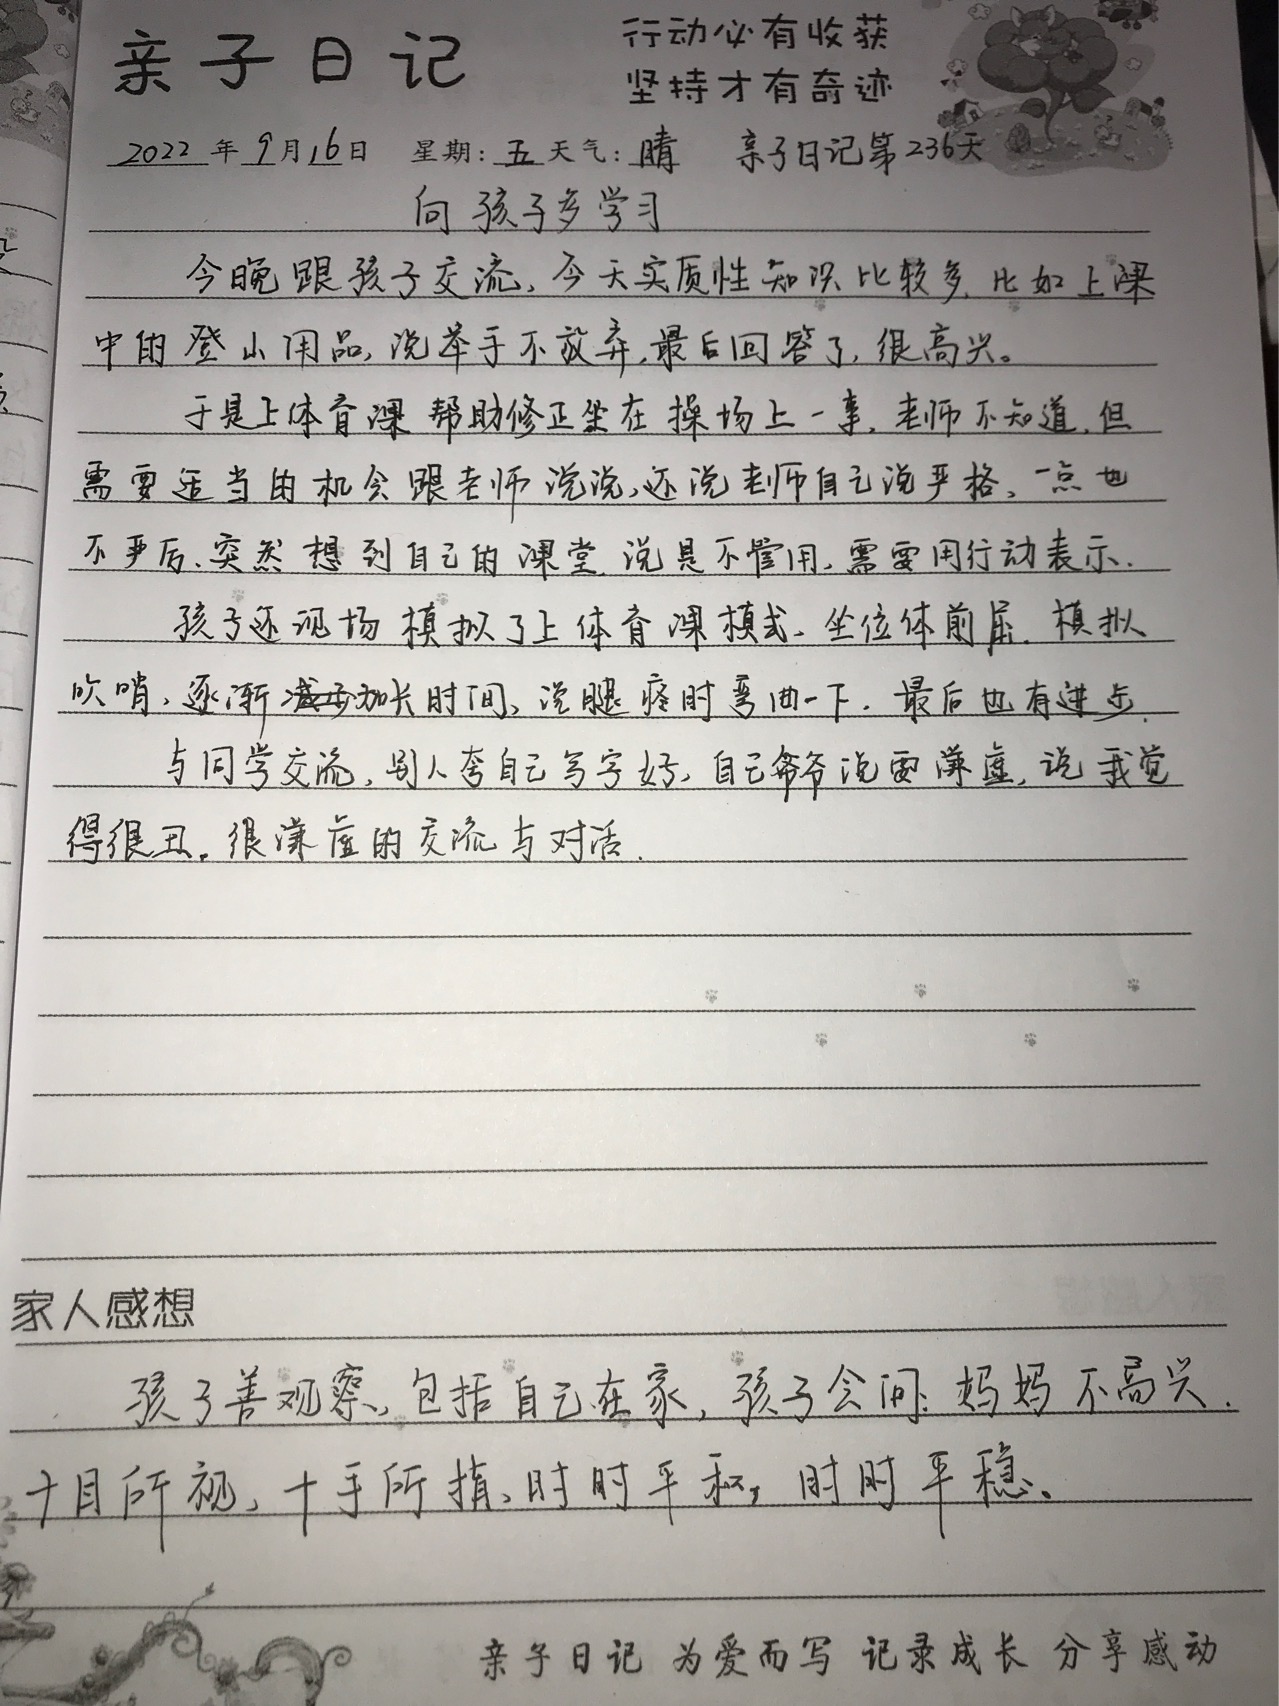 亲子日记
行动必有收获
坚持才有奇迹
2022年9月16日 星期:五天气:晴 亲子日记第236天
向孩子多学习
今晚跟孩子交流,今天实质性知识比较多,比如上课
中的登山用品,说举手不放弃,最后回答了,很高兴。
于是上体育课帮助修正坐在操场上一事,老师不知道,但
需要适当的机会跟老师说说,还说老师自己说严格,一点也
不严厉、突然想到自己的课堂,说是不管用,需要用行动表示.
孩子还现场模拟了上体育课模式、坐位体前屈.模拟
吹哨,逐渐加长时间,说腿疼时弯曲一下.最后也有进步.
与同学交流,别人夸自己写字好,自己爷爷说要谦虚,说我觉
得很丑。很谦虚的交流与对话.
家人感想
孩子善观察,包括自己在家,孩子会问:妈妈不高兴.
十目所视,十手所指,时时平和,时时平稳。
亲子日记 为爱而写 记录成长 分享感动